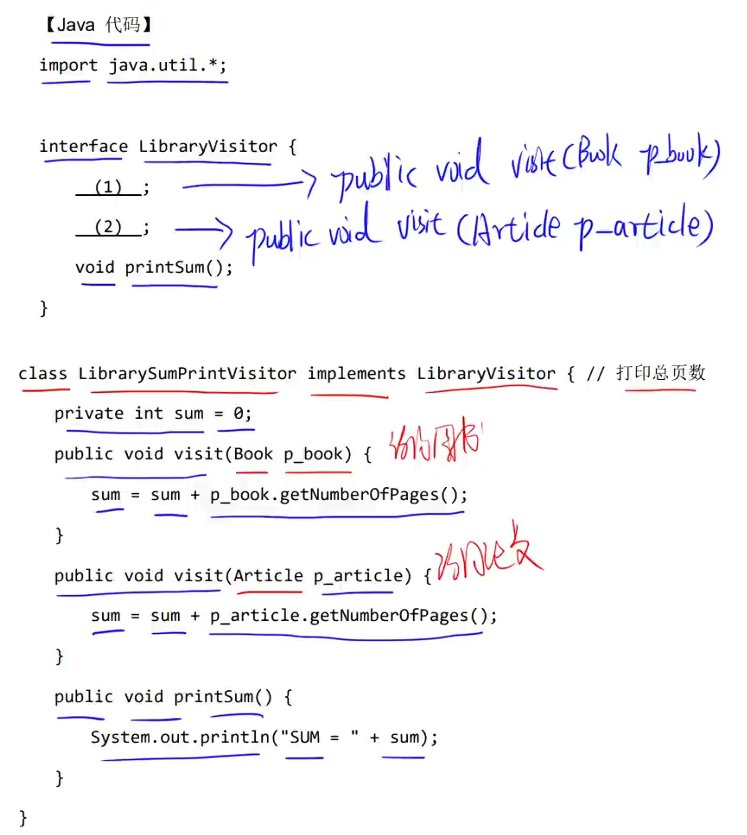 【Java 代码】
import java.util.*;
interface LibraryVisitor {
(1) ; public void visit(Book p_book)
(2) ; public void visit (Article p_article)
void printSum();
}
class LibrarySumPrintVisitor implements LibraryVisitor { // 打印总页数
private int sum = 0;
public void visit(Book p_book) { 访问图书
sum = sum + p_book.getNumberOfPages();
}
public void visit(Article p_article) { 访问论文
sum = sum + p_article.getNumberOfPages();
}
public void printSum() {
System.out.println("SUM = " + sum);
}
}